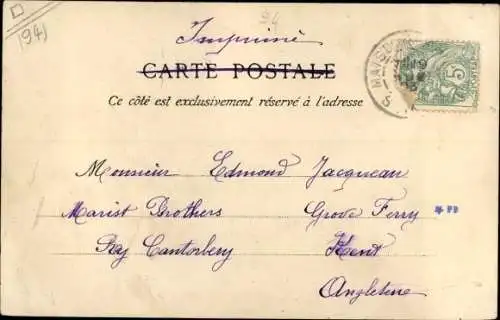 1941
24
Imprimé
CARTE POSTALE
Ce côté est exclusivement réservé à l'adresse
5
Monsieur Edmond Jacqueau
Marist Brothers Grove Ferry
By Cantorbery Kent
Angleterre